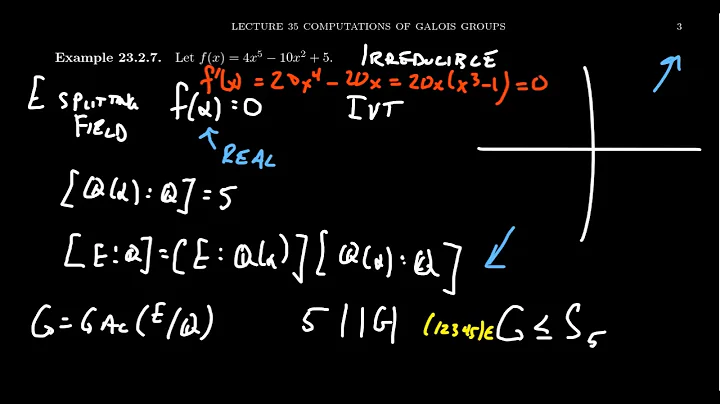 LECTURE 35 COMPUTATIONS OF GALOIS GROUPS 3
Example 23.2.7. Let f(x) = 4x⁵ − 10x² + 5. IRREDUCIBLE
f'(x) = 20x⁴ − 20x = 20x(x³−1) = 0
E SPLITTING FIELD f(α) = 0 IVT
REAL
[Q(α) : Q] = 5
[E : Q] = [E : Q(α)] [Q(α) : Q]
G = GAL(E/Q) 5 | |G| (12345)∈ G ≤ S₅